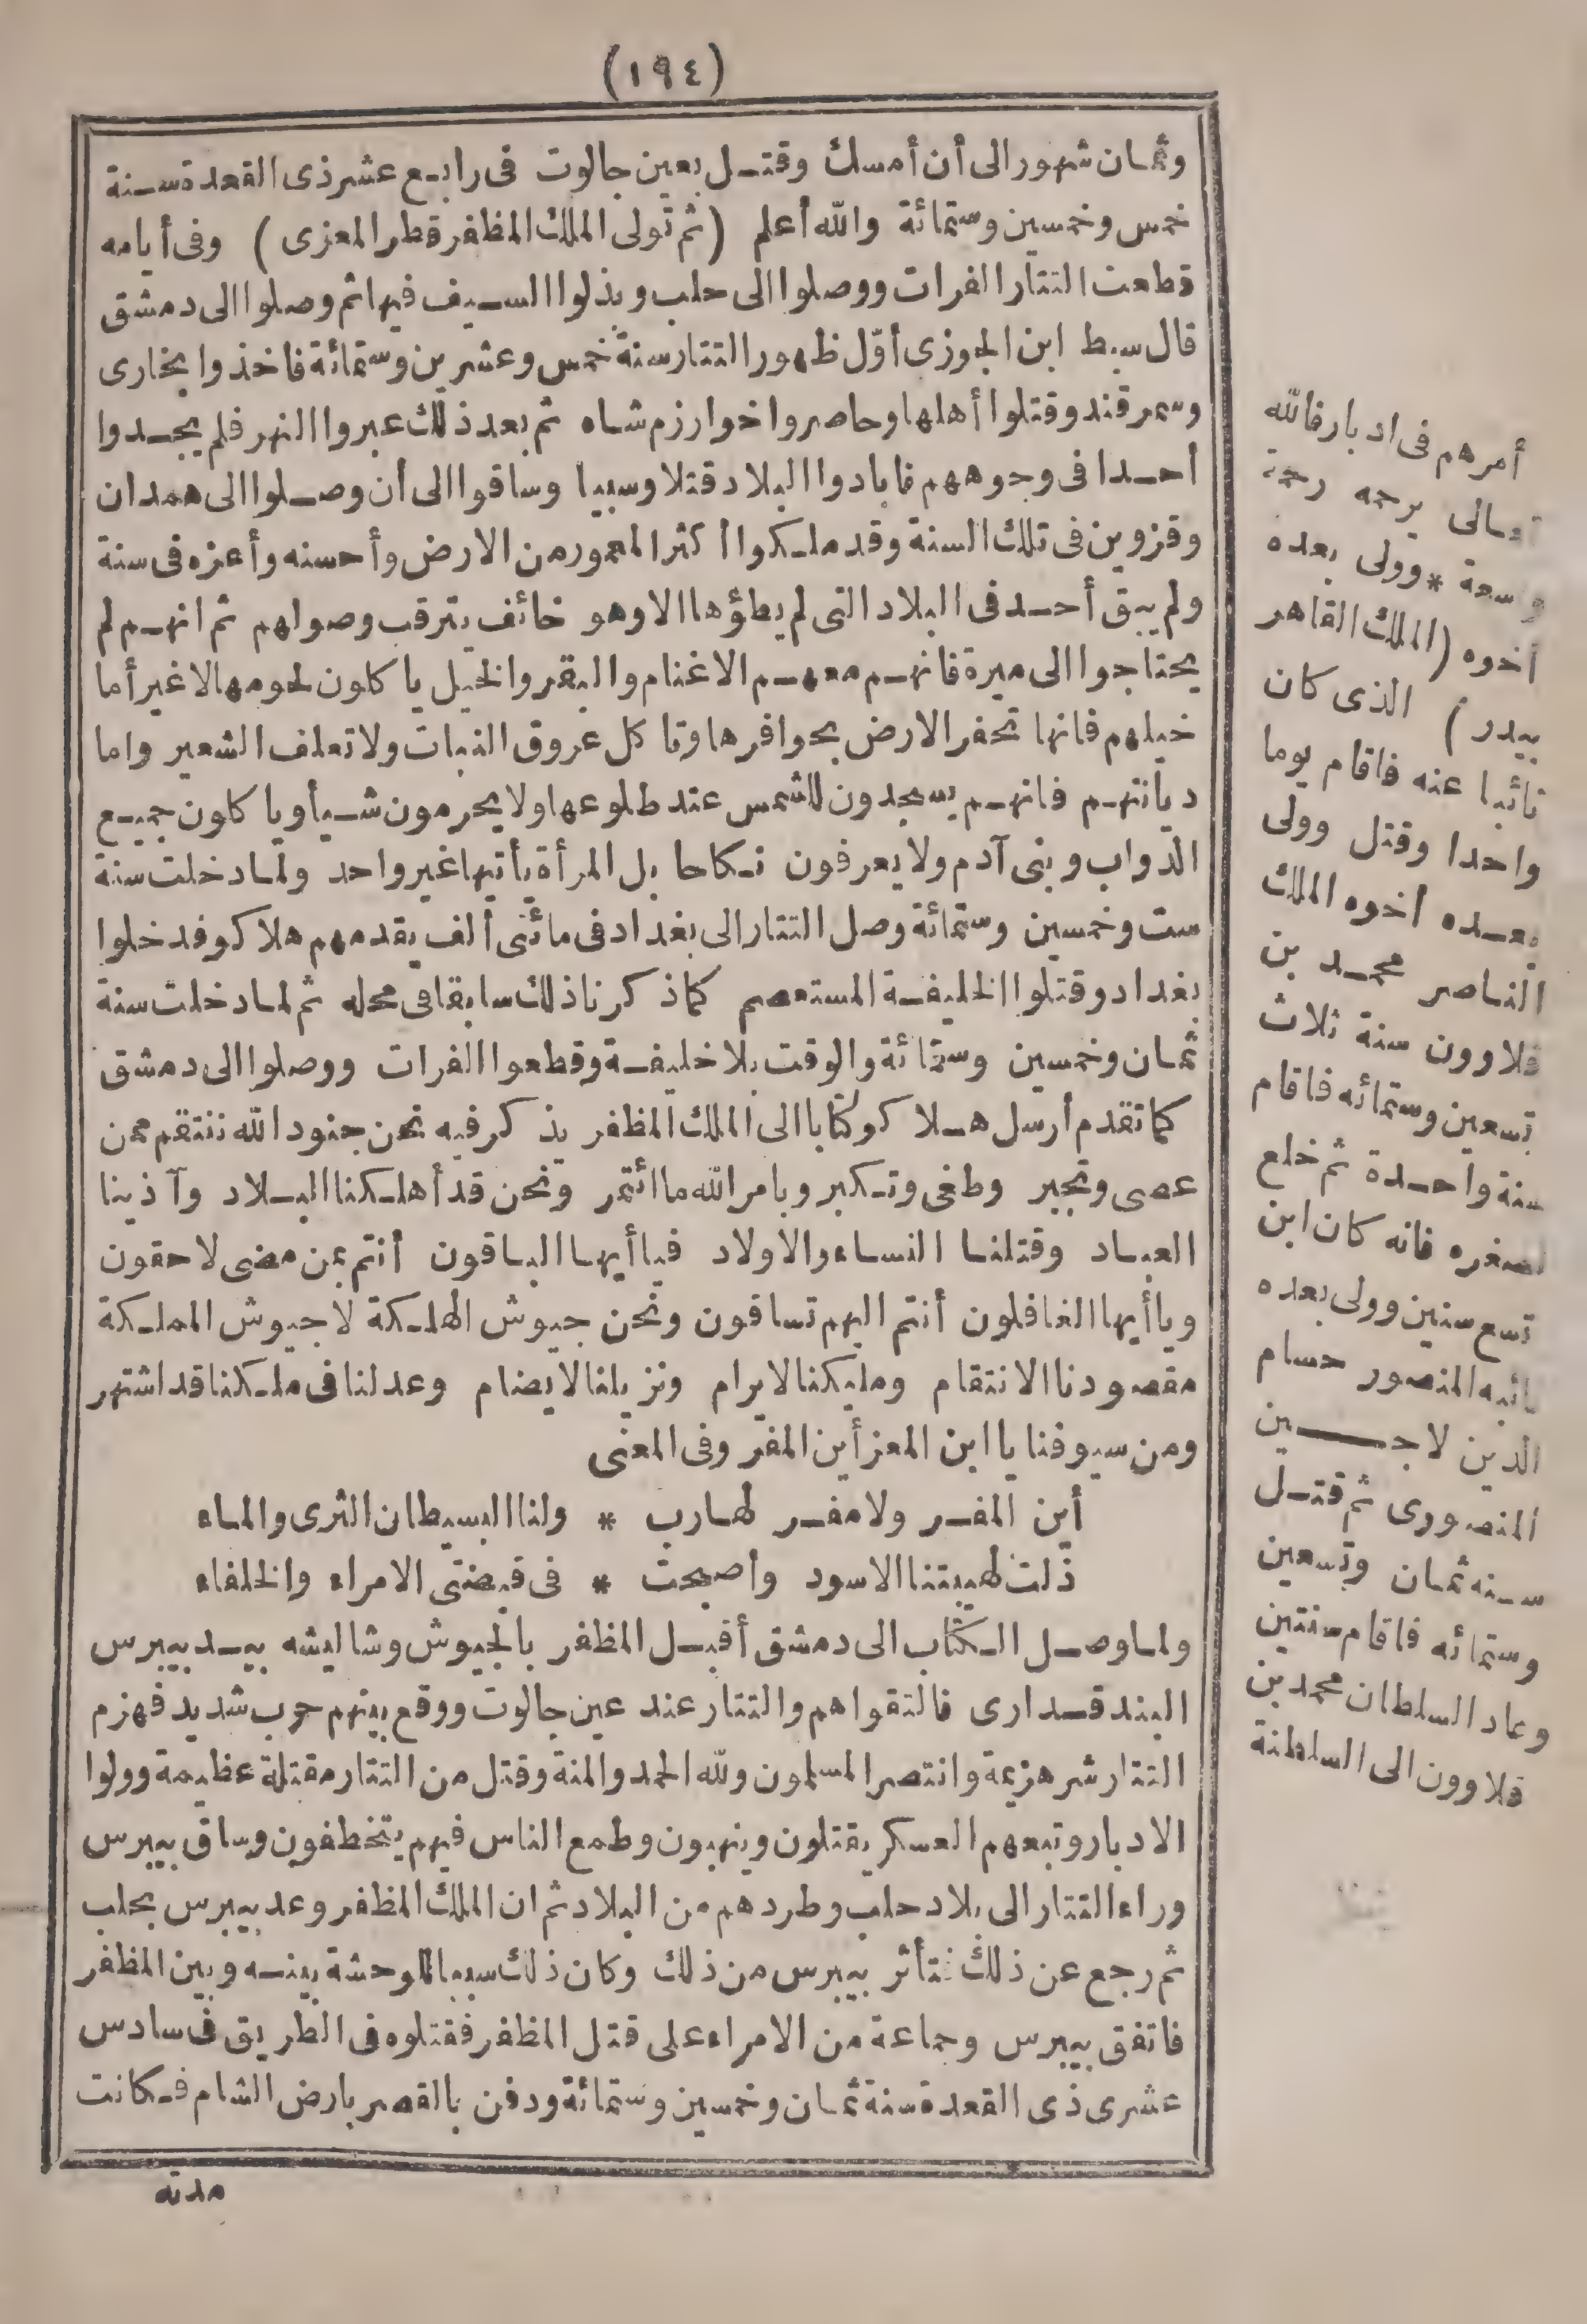 (١٩٤)
وثمان شهور الى أن أمسك وقتل بعين جالوت فى رابع عشر ذى القعدة سنة
خمس وخمسين وستمائة والله أعلم (ثم تولى الملك المظفر قطر المعزى) وفى أيامه
قطعت التتار الفرات ووصلوا الى حلب وبذلوا السيف فيها ثم وصلوا الى دمشق
قال سبط ابن الجوزى أوّل ظهور التتار سنة خمس وعشرين وستمائة فاخذوا بخارى
وسمرقند وقتلوا أهلها وحاصروا خوارزم شاه ثم بعد ذلك عبروا النهر فلم يجدوا
أحدا فى وجوههم فابادوا البلاد قتلا وسبيا وساقوا الى أن وصلوا الى همدان
وقزوين فى تلك السنة وقد ملكوا أكثر المعمور من الارض وأحسنه وأعزه فى سنة
ولم يبق أحد فى البلاد التى لم يطؤها الا وهو خائف يترقب وصولهم ثم انهم لم
يحتاجوا الى ميرة فانهم معهم الاغنام والبقر والخيل ياكلون لحومها لاغير أما
خيلهم فانها تحفر الارض بحوافرها وتاكل عروق النبات ولا تعلف الشعير واما
ديانتهم فانهم يسجدون للشمس عند طلوعها ولا يحرمون شيأ وياكلون جميع
الدواب وبنى آدم ولا يعرفون نكاحا بل المرأة يأتيها غير واحد ولما دخلت سنة
ست وخمسين وستمائة وصل التتار الى بغداد فى مائتى ألف يقدمهم هلاكو فدخلوا
بغداد وقتلوا الخليفة المستعصم كما ذكرنا ذلك سابقا فى محله ثم لما دخلت سنة
ثمان وخمسين وستمائة والوقت بلا خليفة وقطعوا الفرات ووصلوا الى دمشق
كما تقدم أرسل هلاكو كتابا الى الملك المظفر يذكر فيه نحن جنود الله ننتقم ممن
عصى وتجبر وطغى وتكبر وبامر الله ما ائتمر ونحن قد أهلكنا البلاد وآذينا
العباد وقتلنا النساء والاولاد فيا أيها الباقون أنتم بمن مضى لاحقون
ويا أيها الغافلون أنتم اليهم تساقون ونحن جيوش الهلكة لا جيوش المملكة
مقصودنا الانتقام ومليكنا لا يرام ونزيلنا لا يضام وعدلنا فى ملكنا قد اشتهر
ومن سيوفنا يا ابن المعز أين المفر وفى المعنى
أين المفر ولا مفر لهارب * ولنا البسيطان الثرى والماء
ذلت لهيبتنا الاسود واصبحت * فى قبضتى الامراء والخلفاء
ولما وصل الكتاب الى دمشق أقبل المظفر بالجيوش وشاليشه بيد بيبرس
البندقدارى فالتقوا هم والتتار عند عين جالوت ووقع بينهم حرب شديد فهزم
التتار شر هزيمة وانتصر المسلمون ولله الحمد والمنة وقتل من التتار مقتلة عظيمة وولوا
الادبار وتبعهم العسكر يقتلون وينهبون وطمع الناس فيهم يتخطفون وساق بيبرس
وراء التتار الى بلاد حلب وطردهم من البلاد ثم ان الملك المظفر وعد بيبرس بحلب
ثم رجع عن ذلك فتأثر بيبرس من ذلك وكان ذلك سببا للوحشة بينه وبين المظفر
فاتفق بيبرس وجماعة من الامراء على قتل المظفر فقتلوه فى الطريق فى سادس
عشرى ذى القعدة سنة ثمان وخمسين وستمائة ودفن بالقصر بارض الشام فكانت
مدته
أمرهم فى ادبار فالله
تعالى يرحمه رحمة
واسعة * وولى بعده
أخوه (الملك القاهر
بيدر) الذى كان
نائبا عنه فاقام يوما
واحدا وقتل وولى
بعده أخوه الملك
الناصر محمد بن
قلاوون سنة ثلاث
تسعين وستمائه فاقام
سنة واحدة ثم خلع
لصغره فانه كان ابن
تسع سنين وولى بعده
نائبه المنصور حسام
الدين لاجين
المنصورى ثم قتل
سنه ثمان وتسعين
وستمائه فاقام سنتين
وعاد السلطان محمد بن
قلاوون الى السلطنة